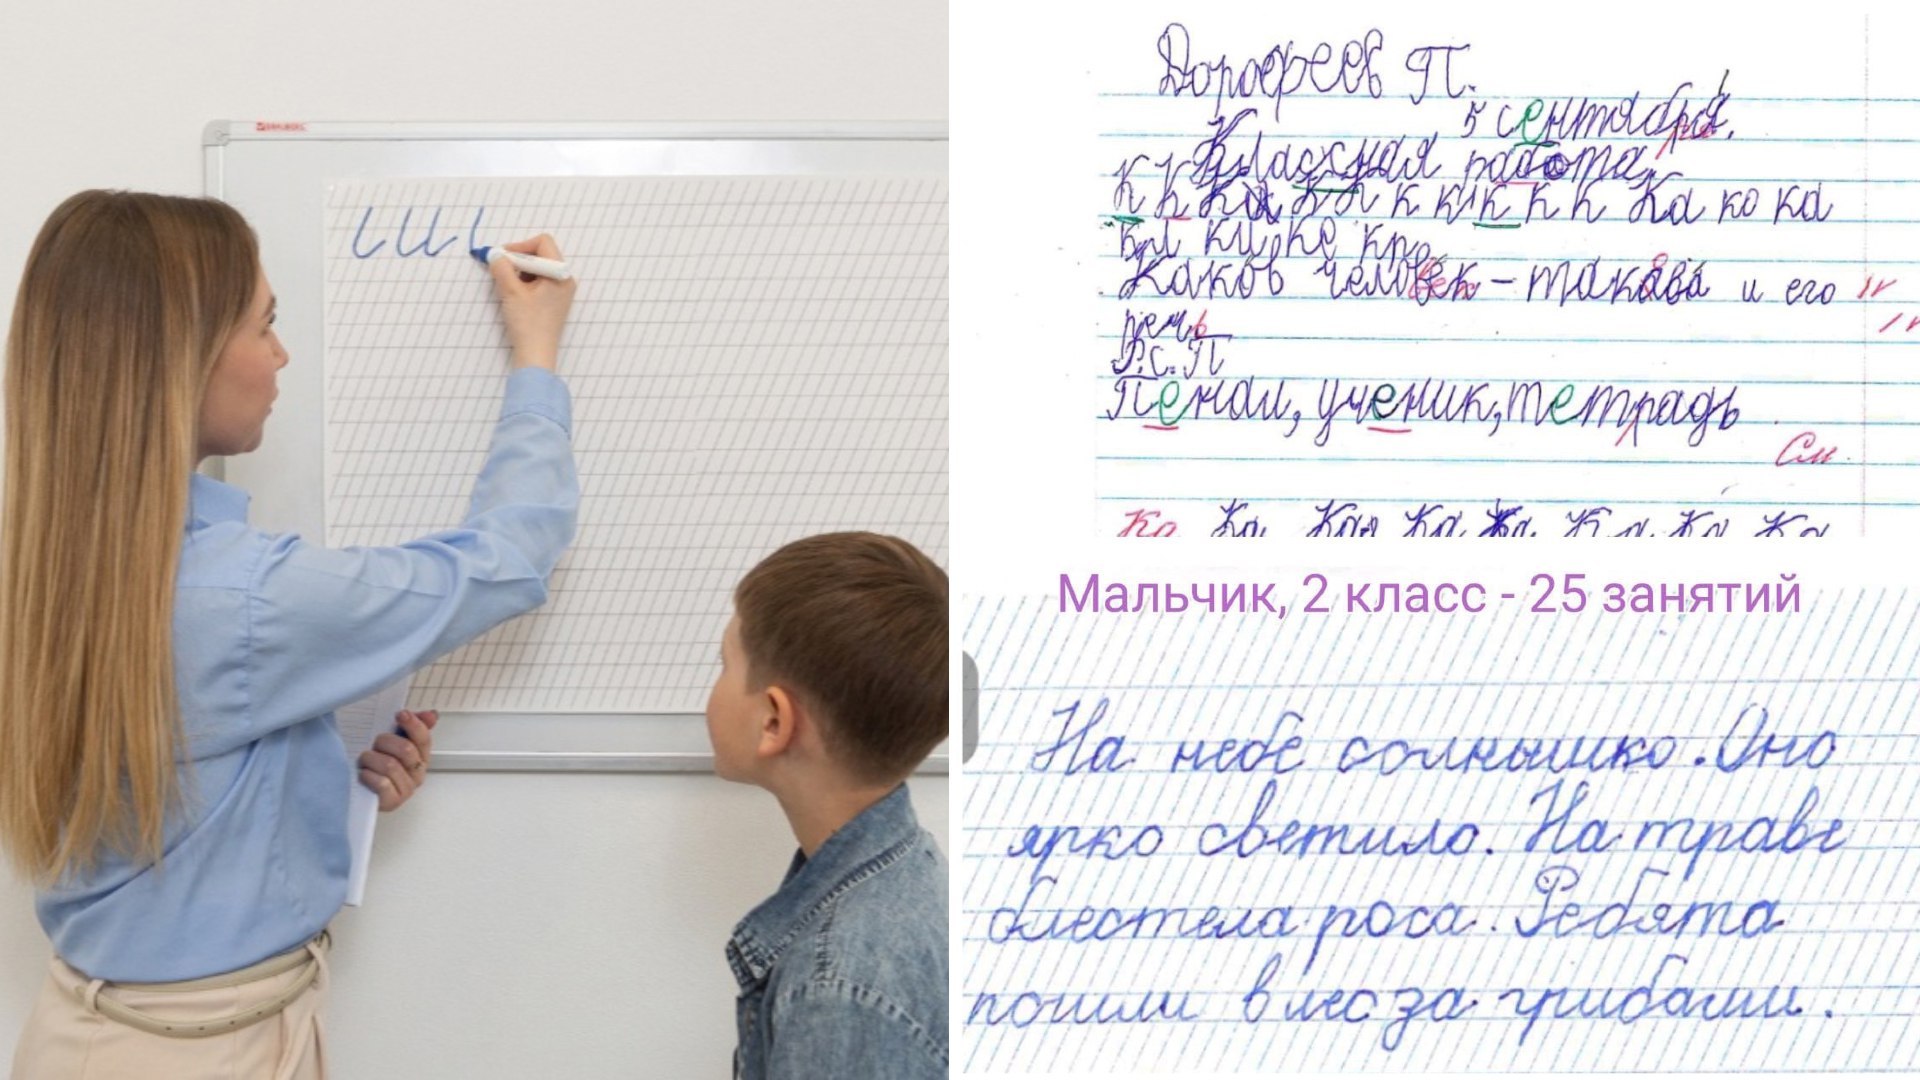 BRAUBERG
Дорофеев П.
5 сентября.
Классная работа
К к к к к к к к к к к Ка ко ка
ки ке
Каков человек - такова и его
речь
Р.С.П
Пенал, ученик, тетрадь
См.
Ка Ка Ка Ка Ка Ка Ка Ка
Мальчик, 2 класс - 25 занятий
На небе солнышко. Оно
ярко светило. На траве
блестела роса. Ребята
пошли в лес за грибами.